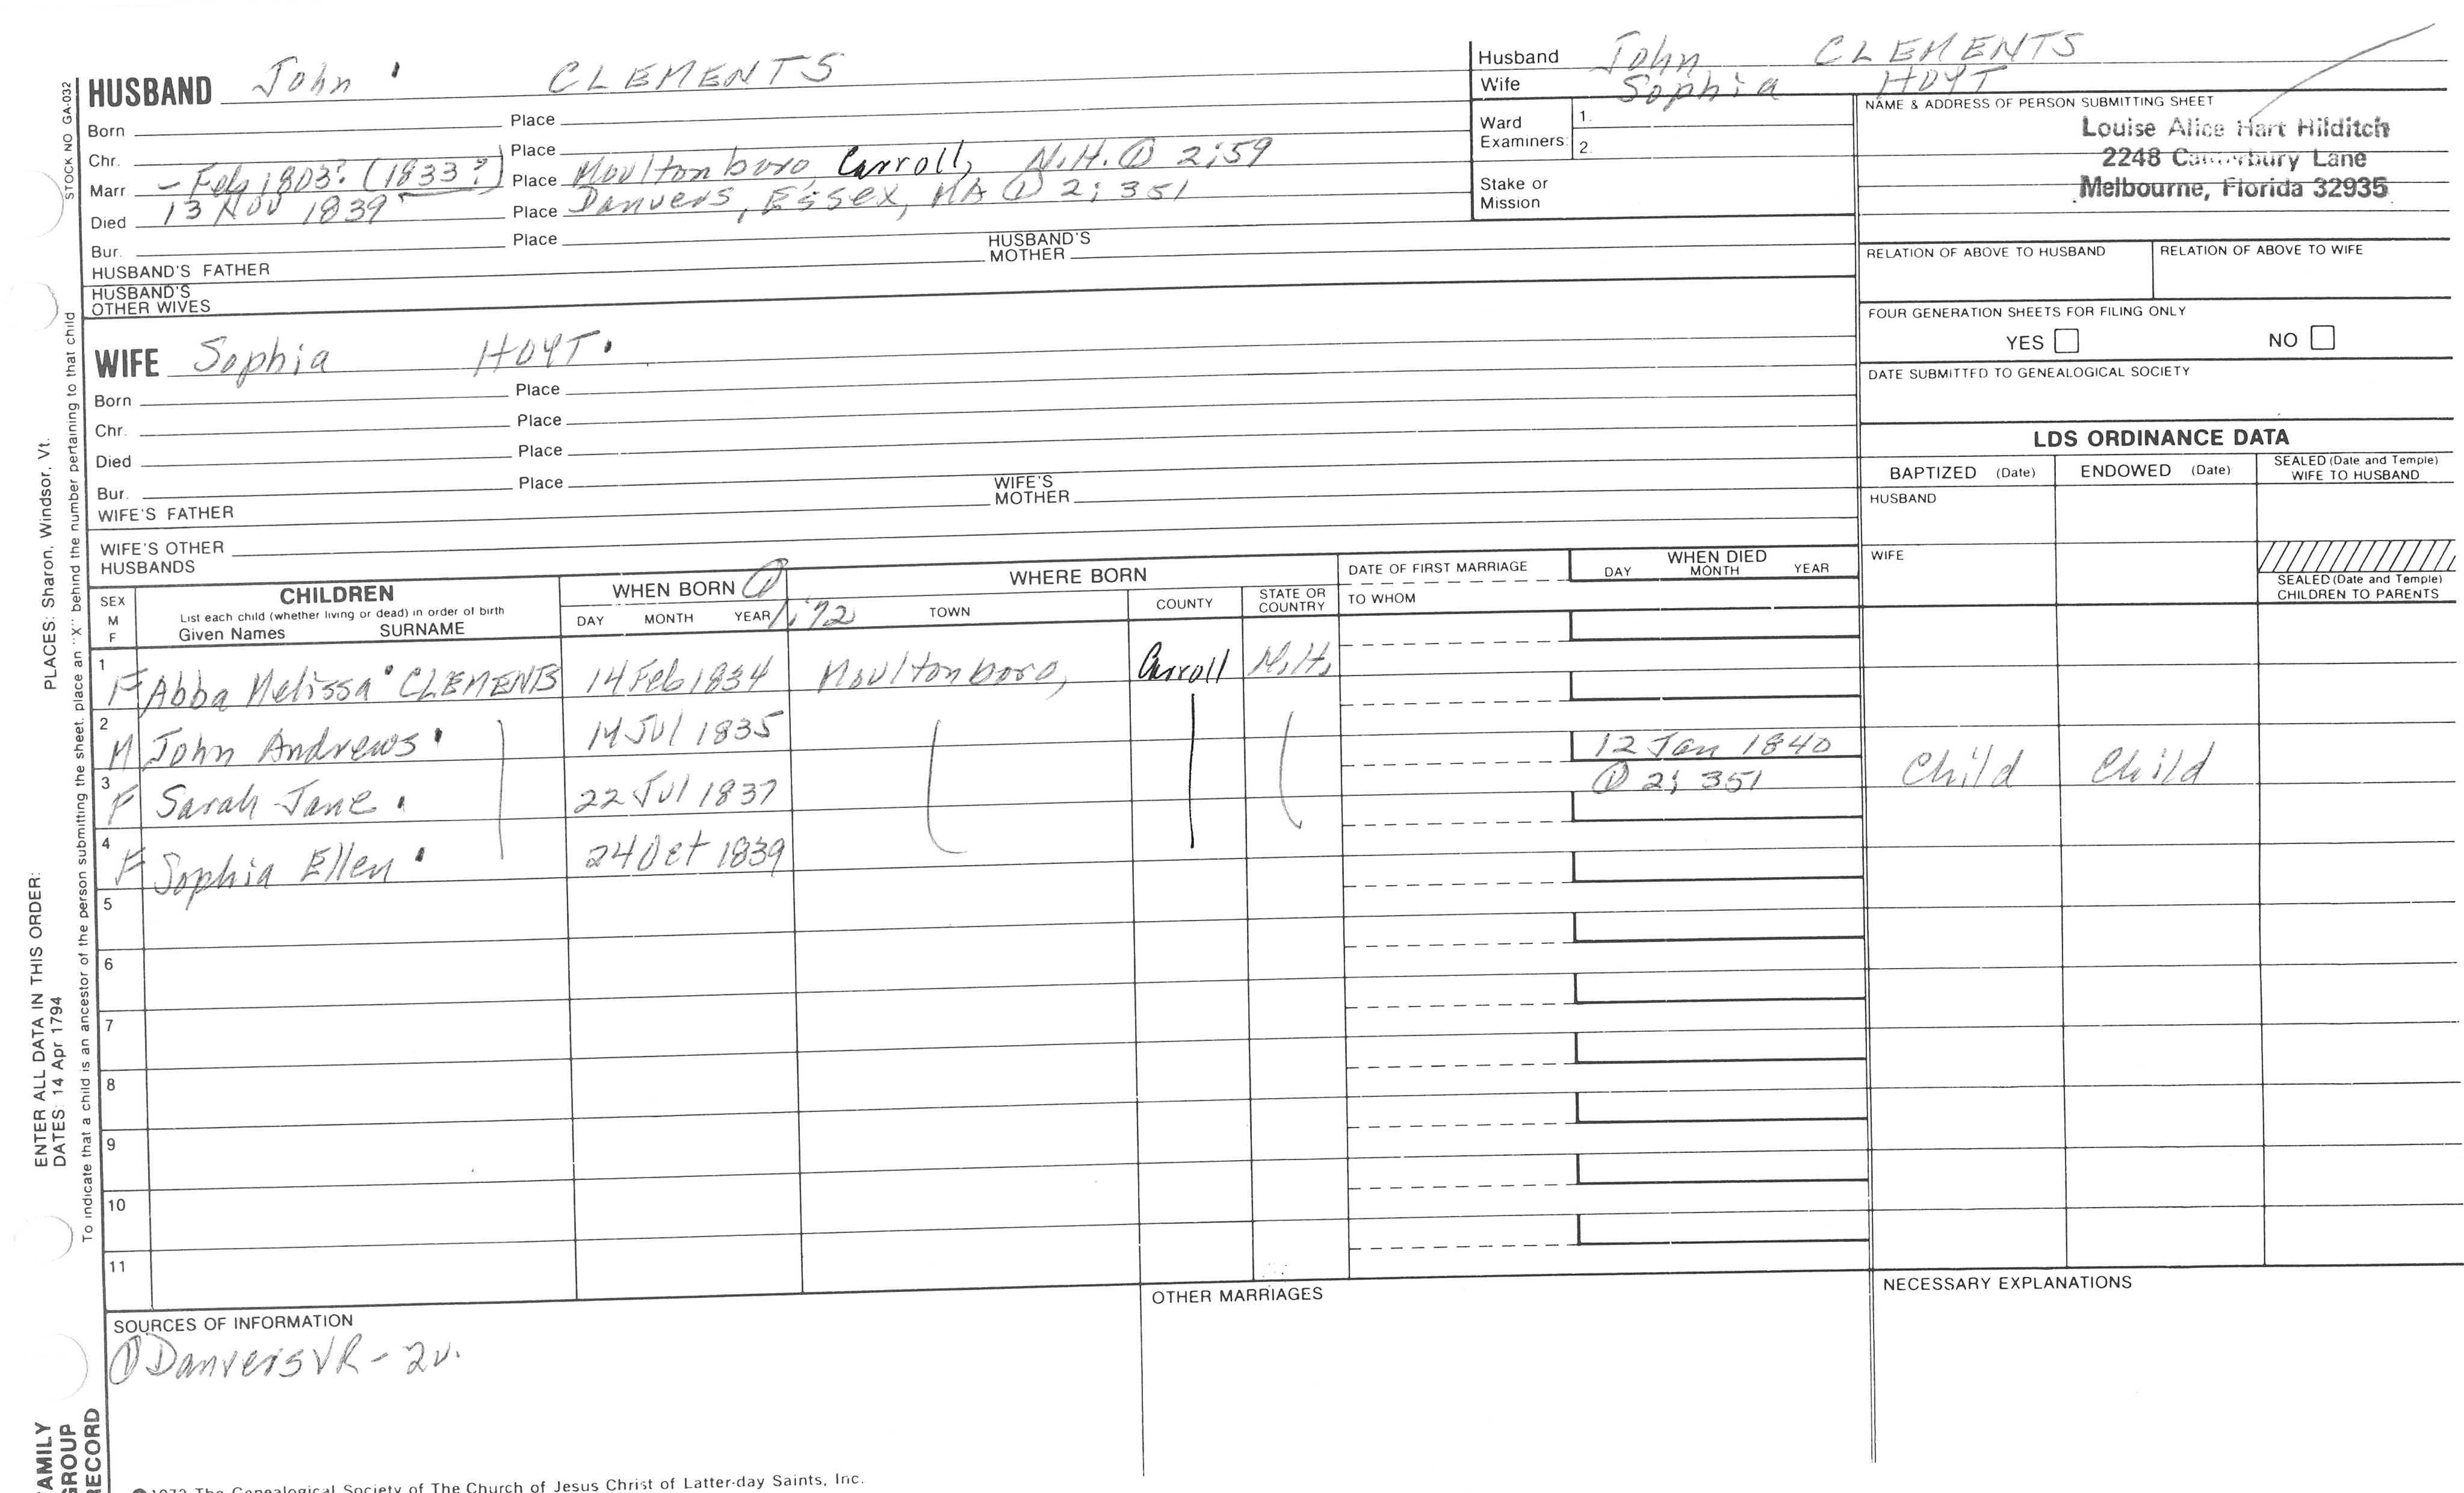 HUSBAND John CLEMENTS
Born Place
Chr. Place
Marr – Feb 1803? (1833?) Place Moultonboro, Carroll, N.H. ① 2;59
Died 13 Nov 1839 Place Danvers, Essex, MA ① 2; 351
Bur. Place
HUSBAND'S FATHER HUSBAND'S MOTHER
HUSBAND'S OTHER WIVES
Husband John CLEMENTS
Wife Sophia HOYT
Ward Examiners: 1.
2.
Stake or Mission
NAME & ADDRESS OF PERSON SUBMITTING SHEET
Louise Alice Hart Hilditch
2248 Canterbury Lane
Melbourne, Florida 32935
RELATION OF ABOVE TO HUSBAND RELATION OF ABOVE TO WIFE
FOUR GENERATION SHEETS FOR FILING ONLY
YES NO
DATE SUBMITTED TO GENEALOGICAL SOCIETY
WIFE Sophia HOYT.
Born Place
Chr. Place
Died Place
Bur. Place
WIFE'S FATHER WIFE'S MOTHER
WIFE'S OTHER HUSBANDS
LDS ORDINANCE DATA
BAPTIZED (Date) ENDOWED (Date) SEALED (Date and Temple) WIFE TO HUSBAND
HUSBAND
WIFE
SEALED (Date and Temple) CHILDREN TO PARENTS
SEX M F
CHILDREN
List each child (whether living or dead) in order of birth
Given Names SURNAME
WHEN BORN ①
DAY MONTH YEAR 1;72
WHERE BORN
TOWN COUNTY STATE OR COUNTRY
DATE OF FIRST MARRIAGE
TO WHOM
WHEN DIED
DAY MONTH YEAR
1 F Abba Melissa CLEMENTS 14 Feb 1834 Moultonboro, Carroll N.H.
2 M John Andrews 14 Jul 1835
3 F Sarah Jane 22 Jul 1837 12 Jan 1840 ① 2; 351 Child Child
4 F Sophia Ellen 24 Oct 1839
5
6
7
8
9
10
11
SOURCES OF INFORMATION
① Danvers VR – 2v.
OTHER MARRIAGES
NECESSARY EXPLANATIONS
1972 The Genealogical Society of The Church of Jesus Christ of Latter-day Saints, Inc.
STOCK NO GA-032
PLACES: Sharon, Windsor, Vt.
ENTER ALL DATA IN THIS ORDER:
DATES: 14 Apr 1794
To indicate that a child is an ancestor of the person submitting the sheet, place an "X" behind the number pertaining to that child
FAMILY
GROUP
RECORD